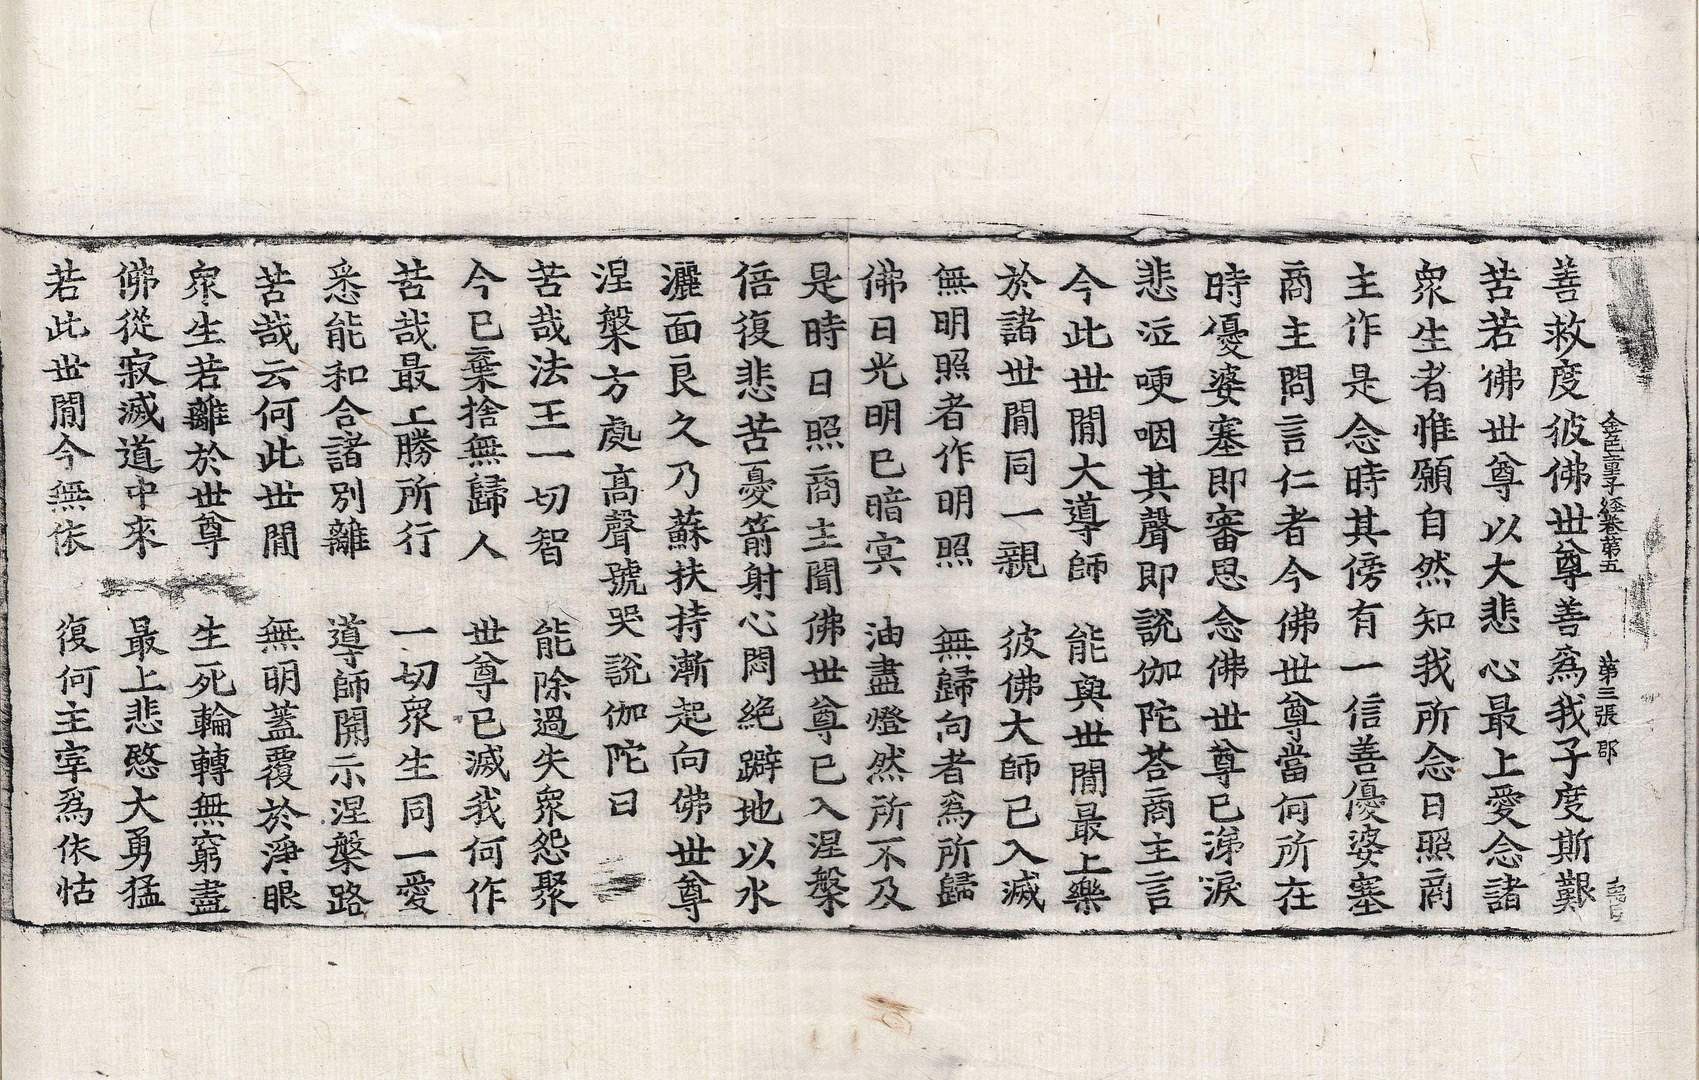 金色童子經卷第五 第三張 郡
善救度彼佛世尊善爲我子度斯艱
苦若佛世尊以大悲心最上愛念諸
衆生者惟願自然知我所念日照商
主作是念時其傍有一信善優婆塞
商主問言仁者今佛世尊當何所在
時優婆塞即審思念佛世尊已涕淚
悲泣哽咽其聲即說伽陀荅商主言
今此世閒大導師 能與世閒最上樂
於諸世閒同一親 彼佛大師已入滅
無明照者作明照 無歸向者爲所歸
佛日光明已暗㝠 油盡燈然所不及
是時日照商主聞佛世尊已入涅槃
倍復悲苦憂箭射心悶絶躃地以水
灑面良久乃蘇扶持漸起向佛世尊
涅槃方處高聲號哭說伽陀曰
苦哉法王一切智 能除過失衆怨聚
今已棄捨無歸人 世尊已滅我何作
苦哉最上勝所行 一切衆生同一愛
悉能和合諸別離 導師開示涅槃路
苦哉云何此世閒 無明蓋覆於淨眼
衆生若離於世尊 生死輪轉無窮盡
佛從寂滅道中來 最上悲愍大勇猛
若此世閒今無依 復何主宰爲依怙